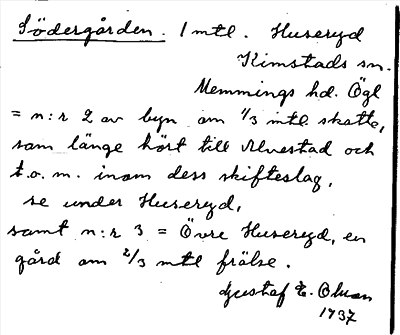 Södergården. 1 mtl. Huseryd
Kimstads sn.
Memmings hd. Ögl
= n:r 2 av byn om 1/3 mtl skatte,
som länge hört till Alvestad och
t.o.m. inom dess skifteslag,
se under Huseryd,
samt n:r 3 = Övre Huseryd, en
gård om 2/3 mtl frälse.
Gustaf E. Olsson
1937